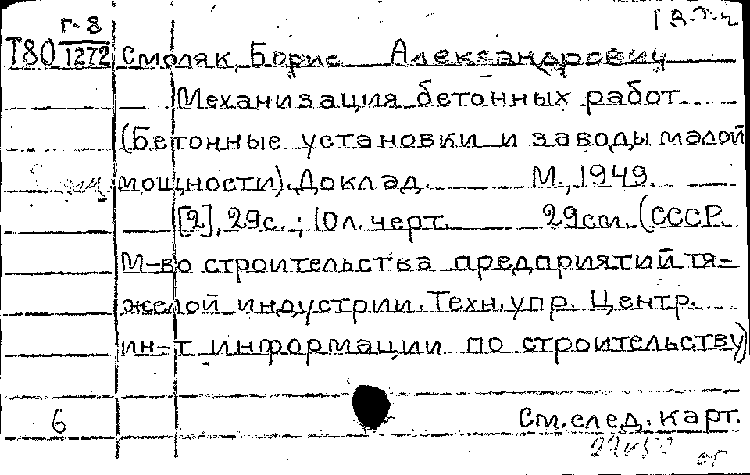 Г-8
Т80 1272 Смоляк, Борис Александрович
Механизация бетонных работ
(Бетонные установки и заводы малой
мощности). Доклад М., 1949.
[2], 29с.; 10л. черт. 29см. (СССР.
М-во строительства предприятий тя-
желой индустрии. Техн. упр. Центр.
ин-т информации по строительству)
6 См. след. карт.